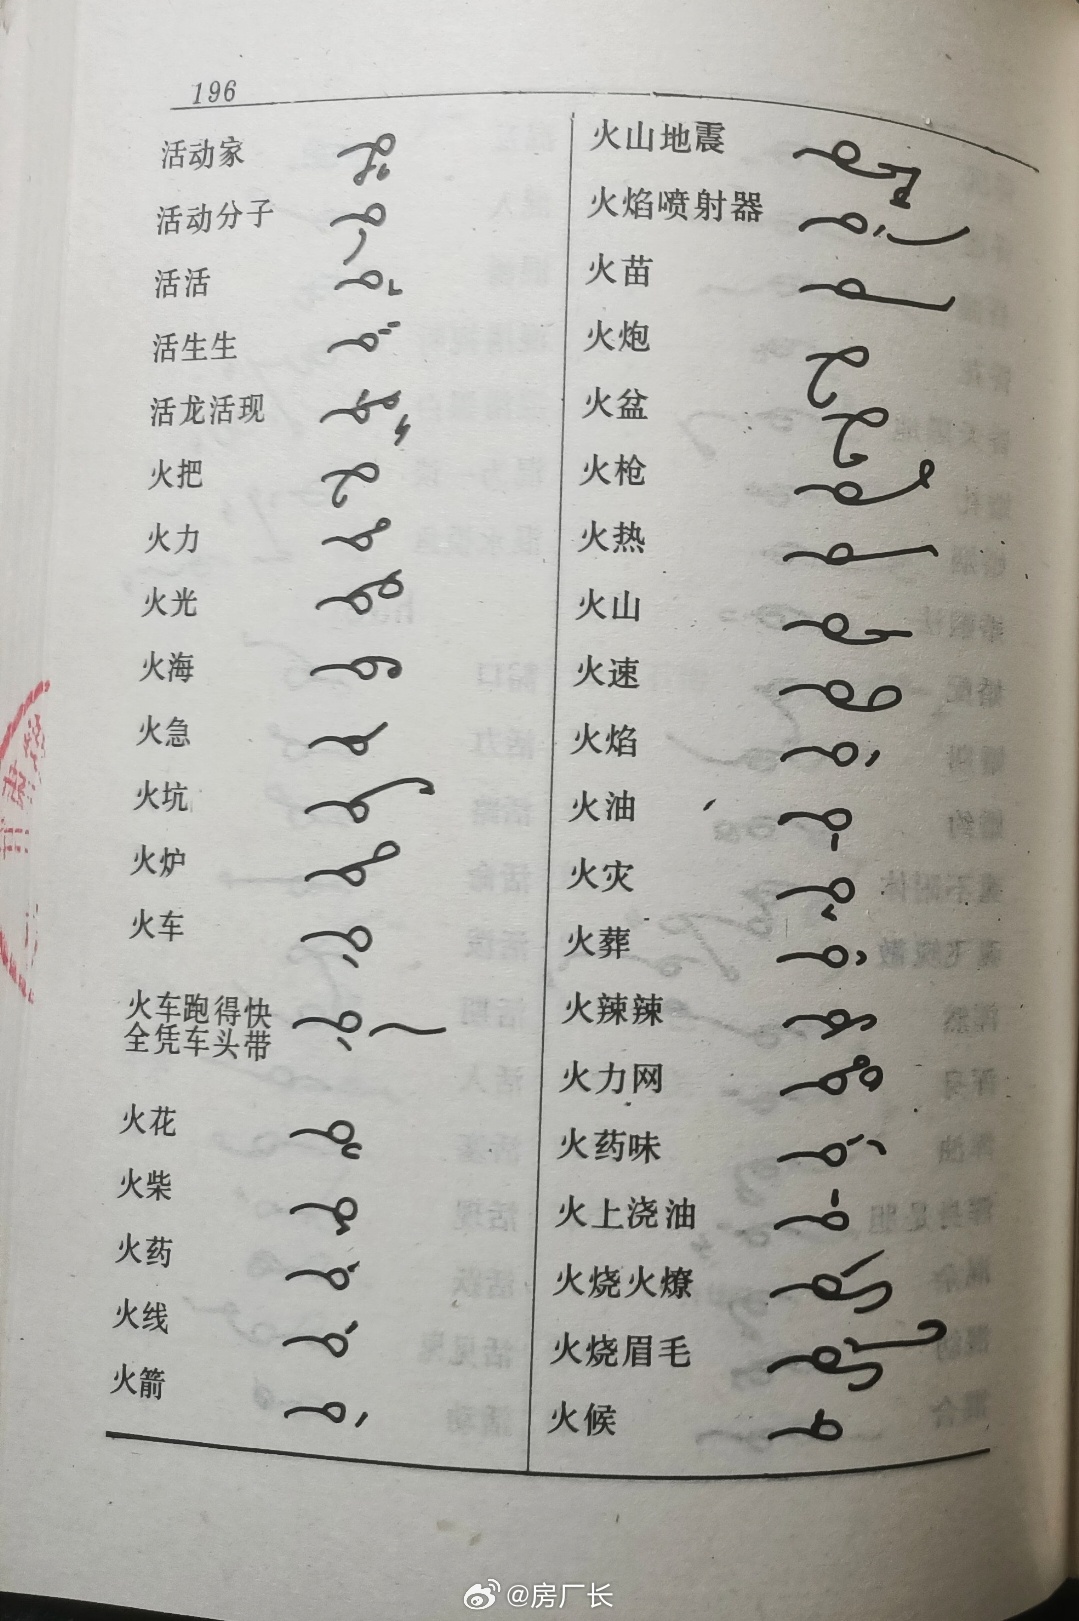 196
活动家
活动分子
活活
活生生
活龙活现
火把
火力
火光
火海
火急
火坑
火炉
火车
火车跑得快
全凭车头带
火花
火柴
火药
火线
火箭
火山地震
火焰喷射器
火苗
火炮
火盆
火枪
火热
火山
火速
火焰
火油
火灾
火葬
火辣辣
火力网
火药味
火上浇油
火烧火燎
火烧眉毛
火候
@房厂长